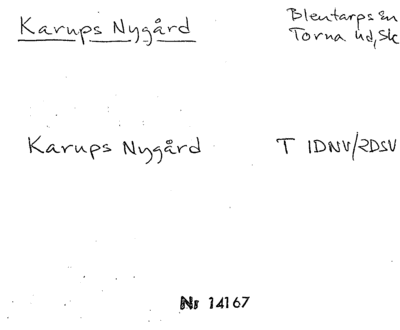 Karups Nygård
Blentarps sn
Torna hd, Sk
Karups Nygård T 1DNV/2DSV
Nr 14167